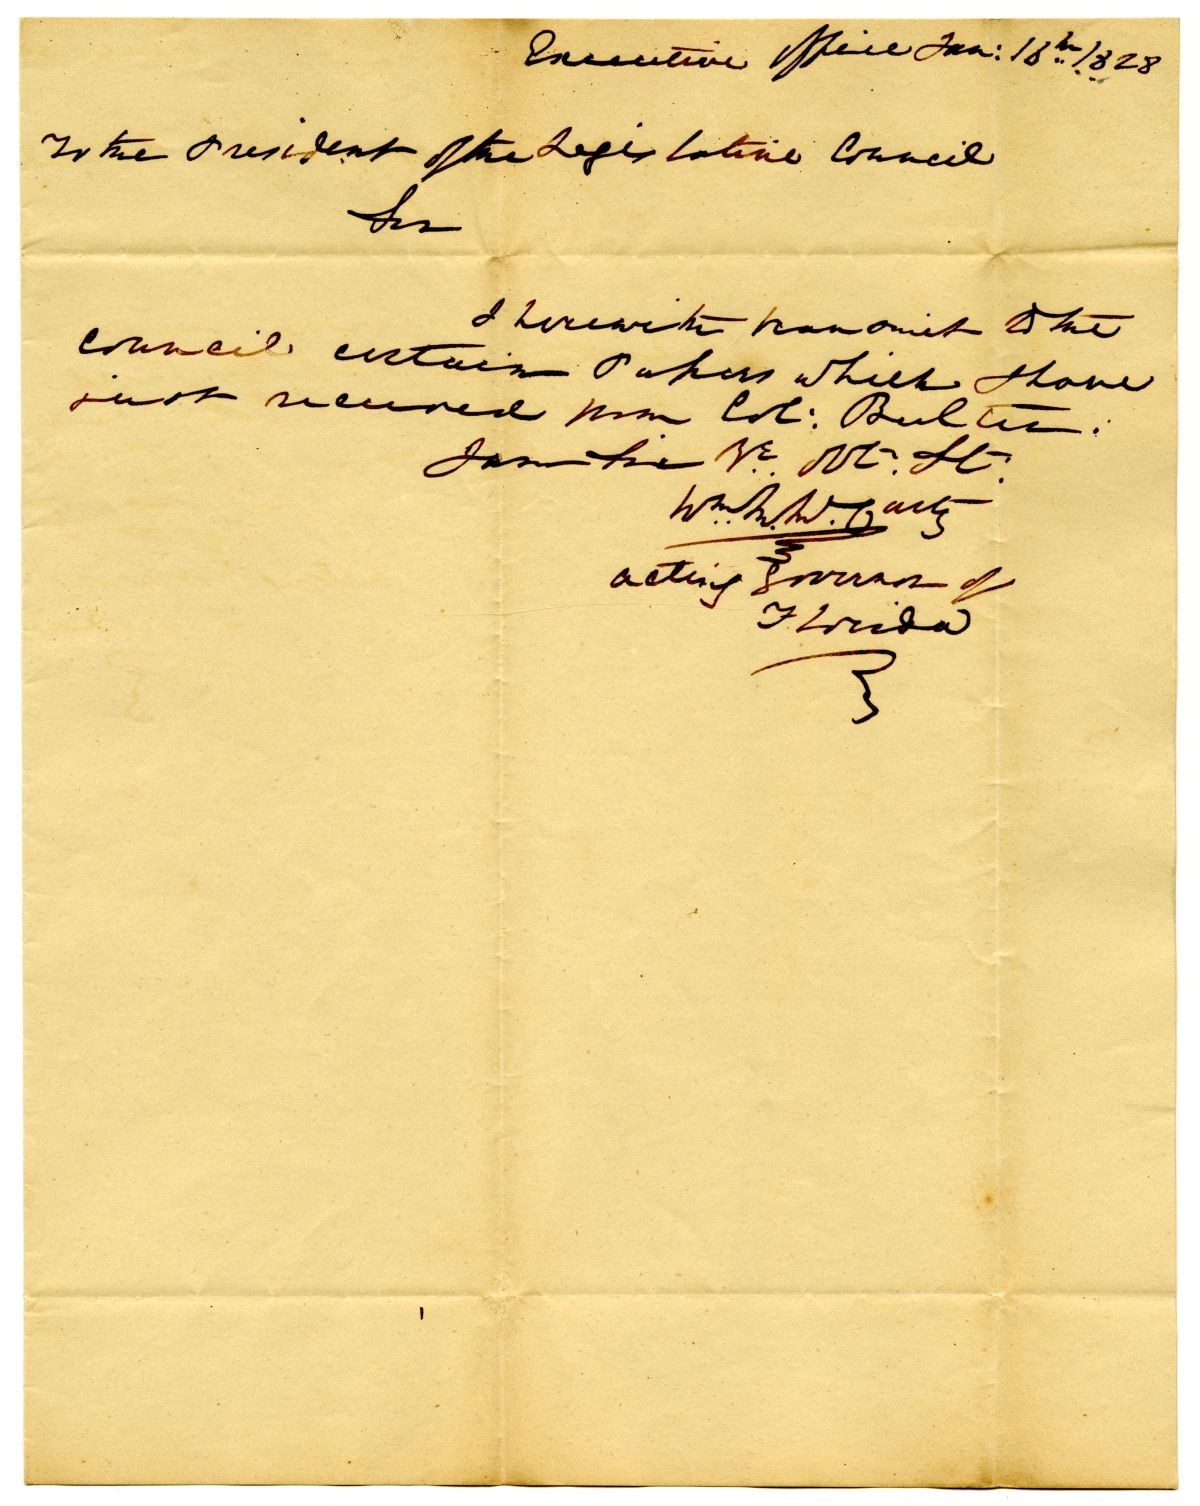 Executive Office Jan: 16th 1828
To the President of the Legislative Council
Sir
I herewith transmit to the
Council certain Papers which I have
just received from Col: Butler.
I am Sir Yr. Obt. St.
Wm. M. McCarty
acting Governor of
Florida